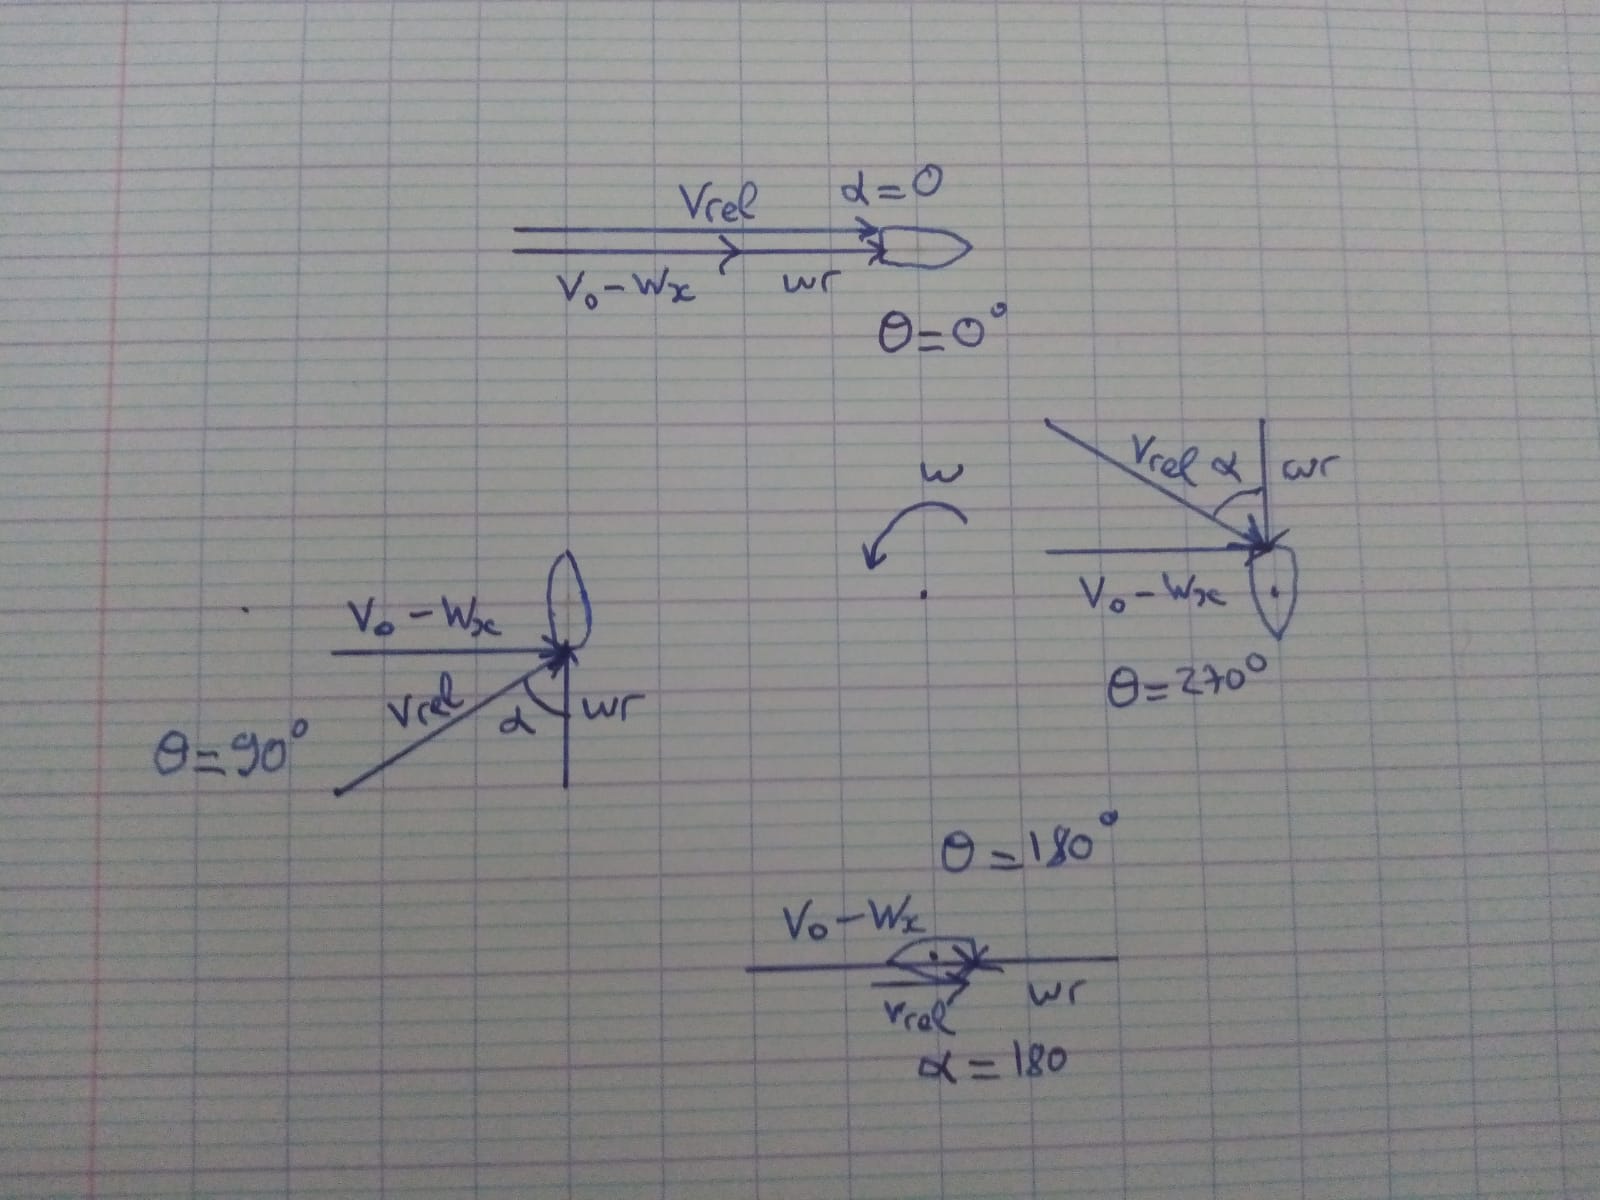 Vrel α=0
V₀-Wx wr
θ=0°
w
Vrel α wr
V₀-Wx
θ=270°
V₀-Wx
Vrel α wr
θ=90°
θ=180°
V₀-Wx
wr
Vrel
α=180